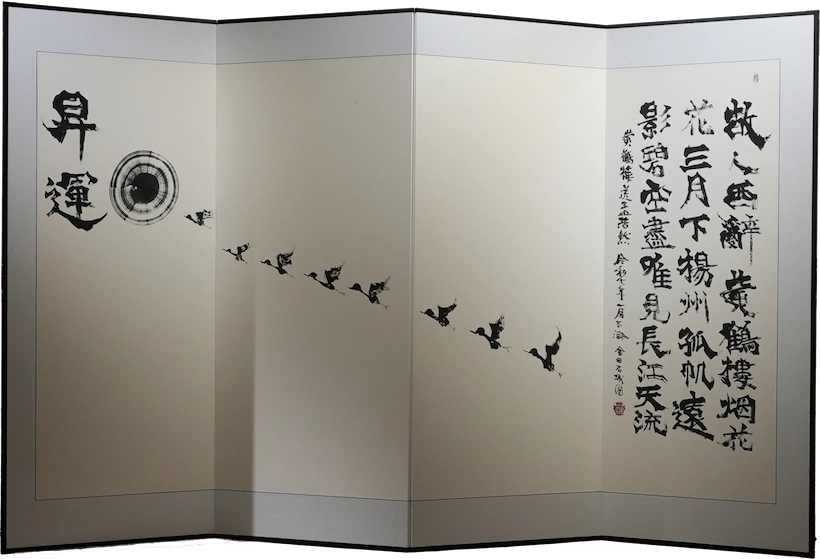 故人西辭黄鶴樓烟花
花三月下揚州孤帆遠
影碧空盡唯見長江天流
黄鶴樓送孟浩然 令和七年一月 金田石城
昇運